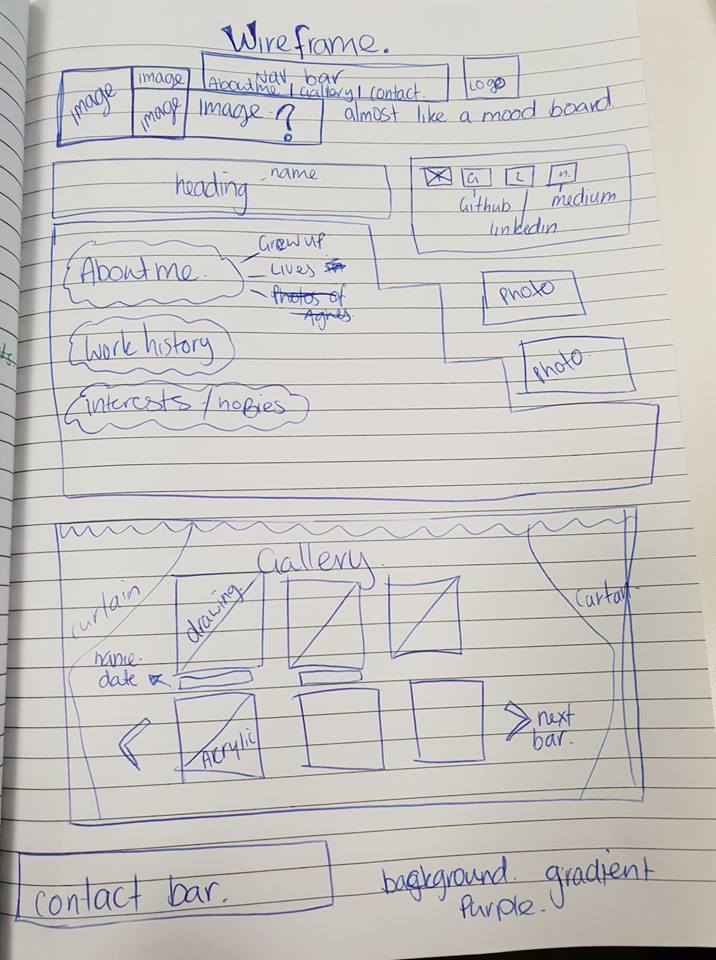 Wireframe.
image
image
image
image ?
Nav bar
About me / Gallery / contact.
Logo
almost like a mood board.
heading
name.
G
L
m.
Github
medium
linkedin
About me.
Grew up
Lives
Photos of
Agnes
photo
photo.
Work history
interests / hobies
Gallery.
curtain
drawing
name.
date
Acrylic
next
bar.
contact bar.
background. gradient
Purple.